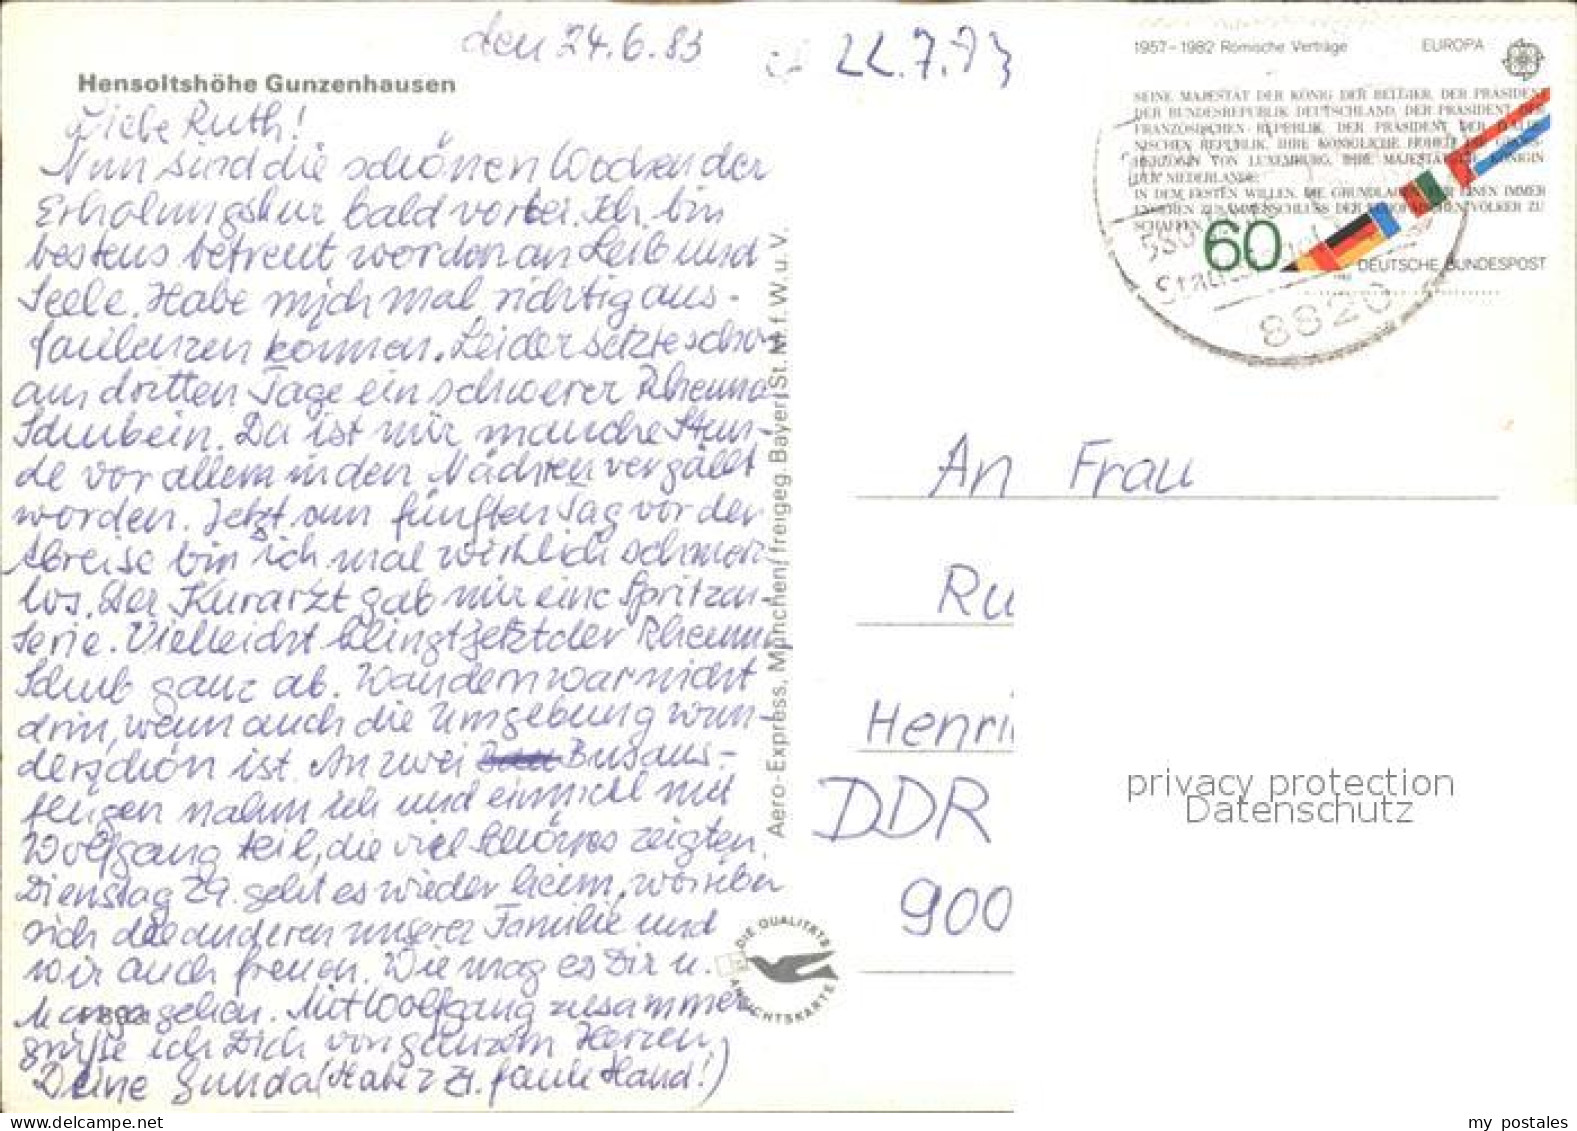 den 24.6.83
22.7.83
Hensoltshöhe Gunzenhausen
Liebe Ruth!
Nun sind die schönen Wochen der
Erholungskur bald vorbei. Ich bin
bestens betreut worden an Leib und
Seele. Habe mich mal richtig aus-
faulenzen können. Leider setzte schon
am dritten Tage ein schwerer Rheuma
Schub ein. Da ist mir manche Stun-
de vor allem in den Nächten vergällt
worden. Jetzt am fünften Tag vor der
Abreise bin ich mal wirklich schmerz-
los. Der Kurarzt gab mir eine Spritzen
Serie. Vielleicht klingt jetzt der Rheuma
Schub ganz ab. Wandern war nicht
drin, wenn auch die Umgebung wun-
derschön ist. An zwei Busaus-
flügen nahm ich und einmal mit
Wolfgang teil, die viel Schönes zeigten.
Dienstag 29. geht es wieder heim, worüber
sich die anderen unserer Familie und
wir auch freuen. Wie mag es Dir u.
gehen. Mit Wolfgang zusammen
grüße ich Dich von ganzem Herzen,
Deine Gunda (Habe z. Zt. faule Hand!)
Aero-Express, München/freigeg. Bayer. St. M. f. W. u. V.
DIE QUALITÄTS
ANSICHTSKARTE
1957-1982 Römische Verträge EUROPA
SEINE MAJESTÄT DER KÖNIG DER BELGIER, DER PRÄSIDENT
DER BUNDESREPUBLIK DEUTSCHLAND, DER PRÄSIDENT DER
FRANZÖSISCHEN REPUBLIK, DER PRÄSIDENT DER ITALIE-
NISCHEN REPUBLIK, IHRE KÖNIGLICHE HOHEIT DIE GROSS-
HERZOGIN VON LUXEMBURG, IHRE MAJESTÄT DIE KÖNIGIN
DER NIEDERLANDE
IN DEM FESTEN WILLEN, DIE GRUNDLAGEN FÜR EINEN IMMER
ENGEREN ZUSAMMENSCHLUSS DER EUROPÄISCHEN VÖLKER ZU
SCHAFFEN,
60
DEUTSCHE BUNDESPOST
8820
An Frau
Ru
Henri
DDR
900
privacy protection
Datenschutz
my postales